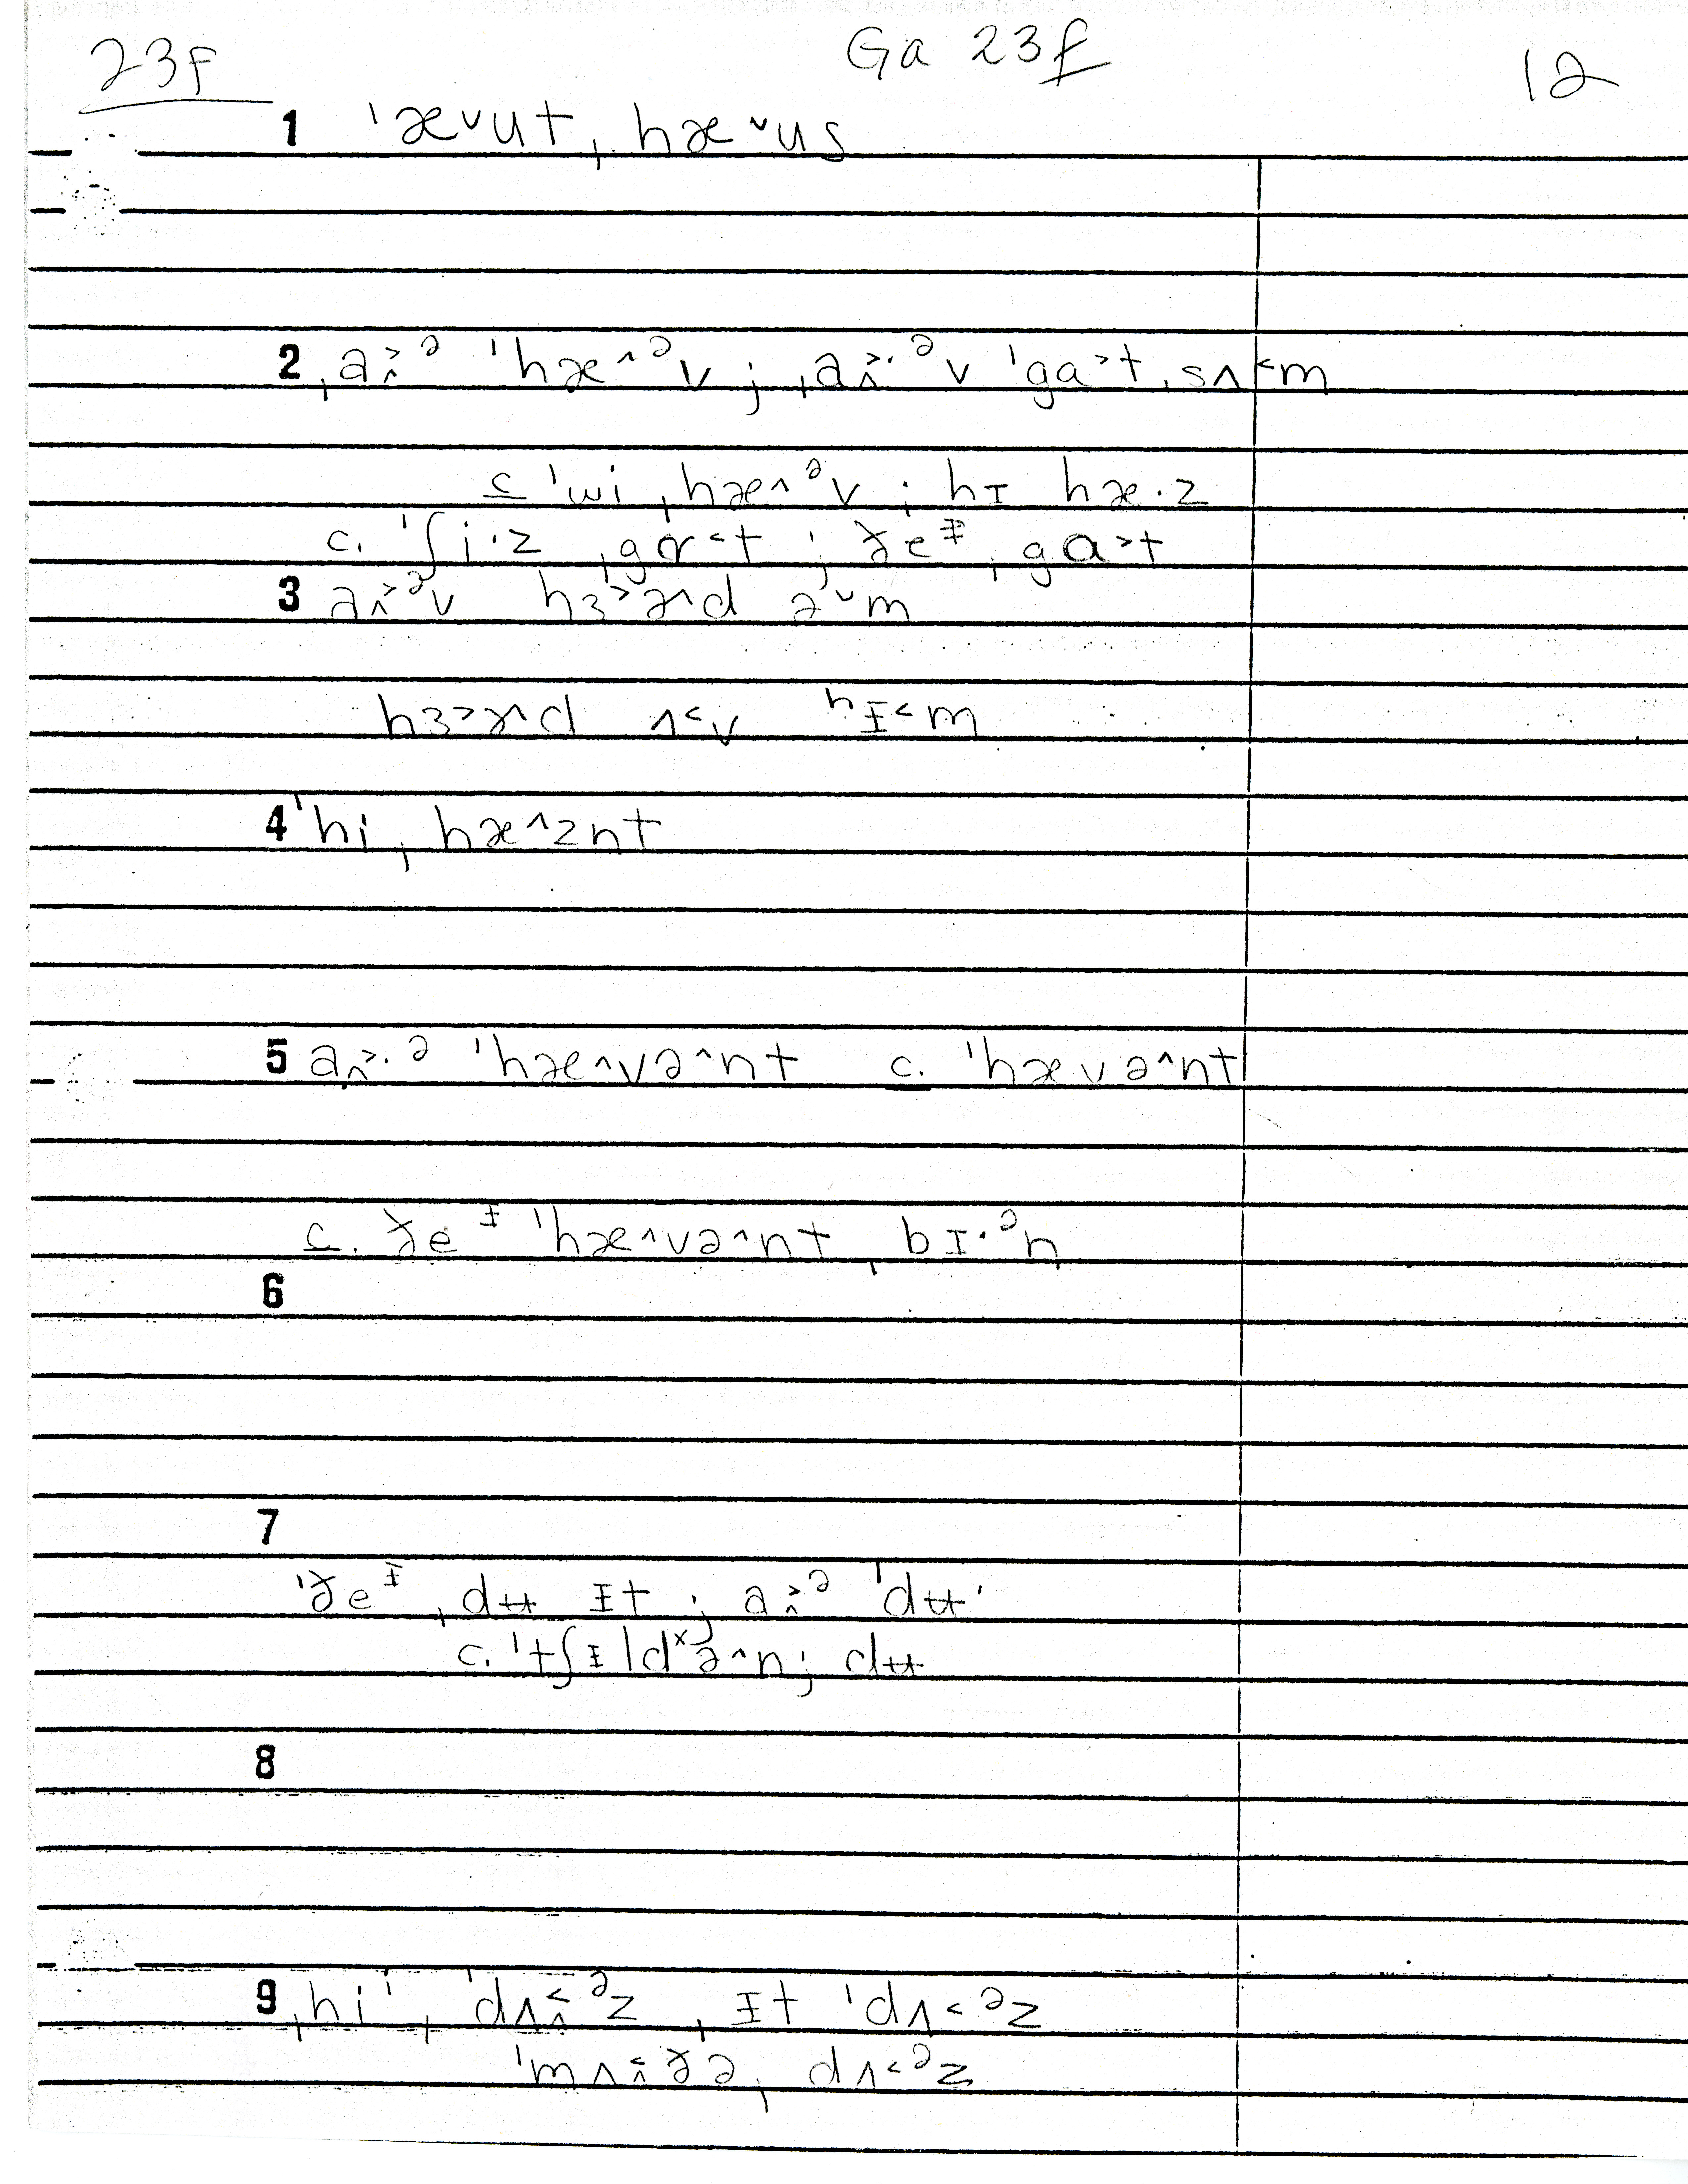 23F Ga 23f 12
1 ˈæ˅ut, hæ˅us
2 ˌa˃ᵊ ˈhæ˄ᵊv ; ˌa˃·ᵊv ˈga˃t ˌsʌ˂m
c ˈwi ˌhæ˄ᵊv ; hɪ hæ·z
c. ˈʃi·z ˌgɑ˂t ; ðeᶤ ˌga˃t
3 a˃ᵊv hɜ˃ɚ˄d ə˅m
hɜ˃ɚ˄d ʌ˂v ʰɪ˂m
4 ˈhi ˌhæ˄znt
5 a˃·ᵊ ˈhæ˄və˄nt c. ˈhævə˄nt
c. ðeᶤ ˈhæ˄və˄nt ˌbɪ·ᵊn
6
7
ˈðeᶤ ˌdʉ ɨt ; a˃ᵊ ˈdʉ·
c. ˈtʃɨldˣə˄n; dʉ
8
9 ˌhi· ˌdʌ˂ᵊz ˌɪt ˈdʌ˂ᵊz
ˈmʌ˂ðə ˌdʌ˂ᵊz